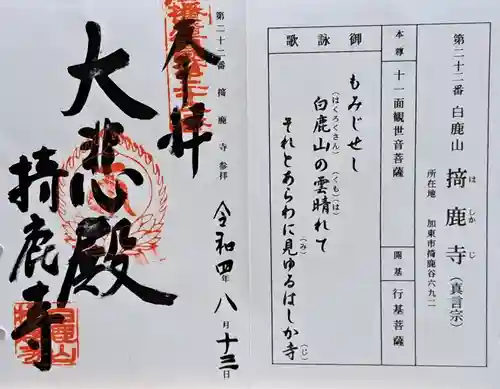 第二十二番 白鹿山
掎鹿寺（真言宗）
はしかじ
所在地 加東市掎鹿谷六九二
本尊 十一面観世音菩薩
開基 行基菩薩
御詠歌
もみじせし
白鹿山の雲晴れて
（はくろくさん）（くも）（は）
それとあらわに見ゆるはしか寺
（み）（じ）
第二十二番 掎鹿寺 参拝
奉拝
令和四年八月十三日
大悲殿
掎鹿寺